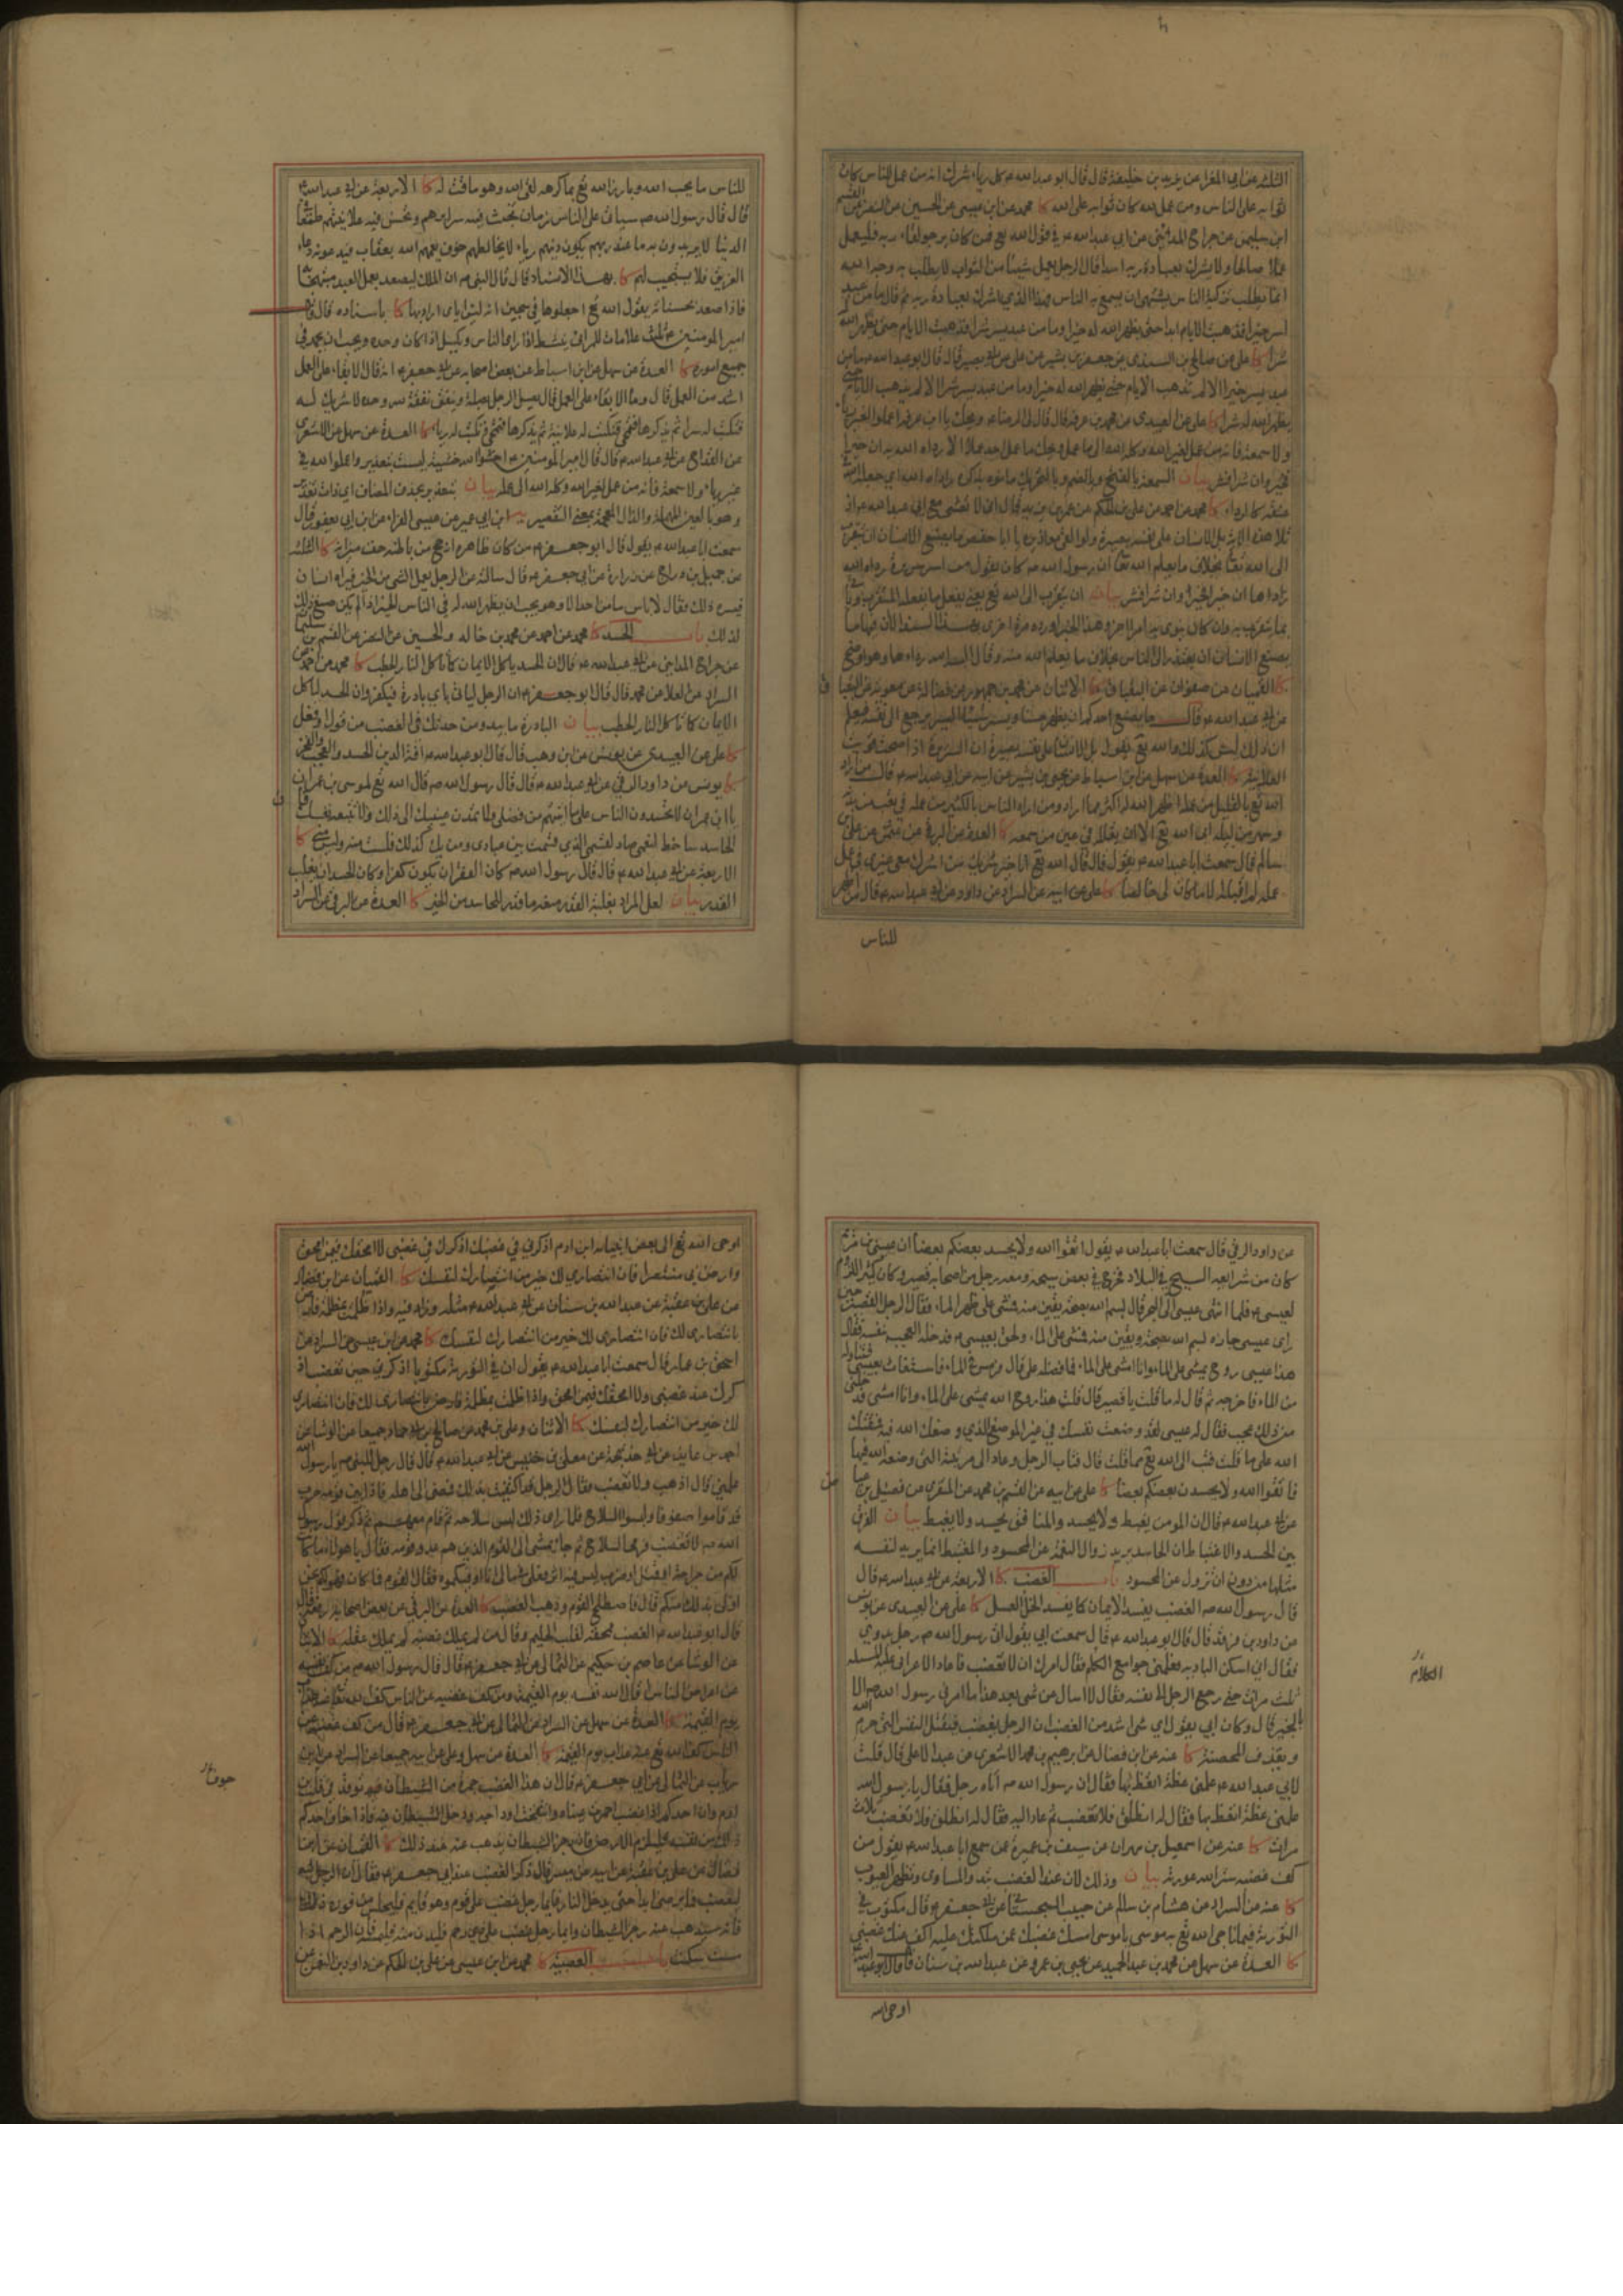 الثلثة عن ابي المغرا عن يزيد بن خليفة قال قال ابو عبد الله ع كل رياء شرك انه من عمل للناس كان
ثوابه على الناس ومن عمل لله كان ثوابه على الله كا محمد عن ابن عيسى عن الحسين عن النضر عن القسم
ابن سليمن عن جراح المدائني عن ابي عبد الله ع في قول الله تع فمن كان يرجو لقاء ربه فليعمل
عملا صالحا ولا يشرك بعبادة ربه احدا قال الرجل يعمل شيئا من الثواب لا يطلب به وجه الله
انما يطلب تزكية الناس يشتهي ان يسمع به الناس فهذا الذي اشرك بعبادة ربه ثم قال ما من عبد
اسر خيرا فذهبت الايام ابدا حتى يظهر الله له خيرا وما من عبد يسر شرا فذهبت الايام حتى يظهر الله
شرا كا علي عن صالح بن السندي عن جعفر بن بشير عن علي عن ابي بصير قال قال ابو عبد الله ع ما من
عبد يسر خيرا الا لم تذهب الايام حتى يظهر الله له خيرا وما من عبد يسر شرا الا لم تذهب الايام حتى
يظهر الله له شرا كا علي عن العبيدي عن محمد بن عرفة قال قال لي الرضا ع ويحك يا ابن عرفة اعملوا لغير رياء
ولا سمعة فانه من عمل لغير الله وكله الله الى ما عمل ويحك ما عمل احد عملا الا رداه الله به ان خيرا
فخير وان شرا فشر بيان السمعة بالفتح وبالضم وبالتحريك ما نوه بذكره رداه الله اي جعله الله
كالرداء كا محمد عن احمد عن علي بن الحكم عن عمر بن يزيد قال اني لا تعشى مع ابي عبد الله ع اذ
تلا هذه الاية بل الانسان على نفسه بصيرة ولو القى معاذيره يا ابا حفص ما يصنع الانسان ان يتقرب
الى الله تعا بخلاف ما يعلم الله تعا ان رسول الله ص كان يقول من اسر سريرة رداه الله
رداءها ان خيرا فخيرا وان شرا فشر بيان ان يتقرب الى الله تع يعني يفعل ما يفعله المتقرب
يصنع الانسان ان يعتذر الى الناس بخلاف ما يعلم الله منه وقال البسه الله رداءها وهو اوضح
كا القميان عن صفوان عن البقباق كا الاثنان عن محمد بن جمهور عن فضالة عن معوية عن
عن ابي عبد الله ع قال ما يصنع احدكم ان يظهر حسنا ويسر سيئا اليس يرجع الى نفسه فيعلم
ان ذلك ليس كذلك والله تع يقول بل الانسان على نفسه بصيرة ان السريرة اذا صحت قويت
العلانية كا العدة عن سهل عن ابن اسباط عن يحيى بن بشير عن ابيه عن ابي عبد الله ع قال من اراد
الله تع بالقليل من عمله اظهر الله له اكثر مما اراد ومن اراد الناس بالكثير من عمله في تعب من بدنه
وسهر من ليله ابى الله تع الا ان يقلله في عين من سمعه كا العدة عن البرقي عن عثمن عن علي بن
سالم قال سمعت ابا عبد الله ع يقول قال الله تع انا خير شريك من اشرك معي غيري في عمل
عمله لم اقبله الا ما كان لي خالصا كا علي عن ابيه عن السراد عن داود عن ابي عبد الله ع قال من اظهر
للناس
للناس ما يحب الله وبارز الله تع بما كرهه لقي الله وهو ماقت له كا الاربعة عن ابي عبد الله ع
قال قال رسول الله ص سياتي على الناس زمان تخبث فيه سرايرهم وتحسن فيه علانيتهم طمعا في
الدنيا لا يريدون به ما عند ربهم يكون دينهم رياء لا يخالطهم خوف يعمهم الله بعقاب فيدعونه دعاء
الغريق فلا يستجيب لهم كا بهذا الاسناد قال قال النبي ص ان الملك ليصعد بعمل العبد مبتهجا
فاذا صعد بحسناته يقول الله تع اجعلوها في سجين انه ليس اياي اراد بها كا باسناده قال قال
امير المومنين ع ثلث علامات للمرائي ينشط اذا راى الناس ويكسل اذا كان وحده ويحب ان يحمد في
جميع اموره كا العدة عن سهل عن ابن اسباط عن بعض اصحابه عن ابي جعفر ع انه قال الابقاء على العمل
اشد من العمل قال وما الابقاء على العمل قال يصل الرجل بصلة وينفق نفقة لله وحده لا شريك له
فتكتب له سرا ثم يذكرها فتمحى فتكتب له علانية ثم يذكرها فتمحى وتكتب له رياء كا العدة عن سهل عن الاشعري
عن القداح عن ابي عبد الله ع قال قال امير المومنين ع اخشوا الله خشية ليست بتعذير واعملوا لله في
غير رياء ولا سمعة فانه من عمل لغير الله وكله الله الى عمله بيان بتعذير بحذف المضاف اي ذات تعذير
وهو بالعين المهملة والذال المعجمة بمعنى التقصير يه ابن ابي عمير عن عيسى الفراء عن ابن ابي يعفور قال
سمعت ابا عبد الله ع يقول قال ابو جعفر ع من كان ظاهره ارجح من باطنه خف ميزانه كا الثلثة
عن جميل بن دراج عن زرارة عن ابي جعفر ع قال سالته عن الرجل يعمل الشي من الخير فيراه انسان
فيسره ذلك فقال لا باس ما من احد الا وهو يحب ان يظهر الله له في الناس الخير اذا لم يكن صنع ذلك
لذلك باب الحسد كا محمد عن احمد عن محمد بن خالد والحسين عن النضر عن القسم بن سليمن
عن جراح المدايني عن ابي عبد الله ع قال ان الحسد ياكل الايمان كما تاكل النار الحطب كا محمد عن احمد عن
السراد عن العلا عن محمد قال قال ابو جعفر ع ان الرجل لياتي باي بادرة فيكفر وان الحسد لياكل
الايمان كما تاكل النار الحطب بيان البادرة ما يبدو من حدتك في الغضب من قول او فعل
كا علي عن العبيدي عن يونس عن ابن وهب قال قال ابو عبد الله ع افة الدين الحسد والعجب والفخر
كا يونس عن داود الرقي عن ابي عبد الله ع قال قال رسول الله ص قال الله تع لموسى بن عمران
يا ابن عمران لا تحسدن الناس على ما اتيتهم من فضلي ولا تمدن عينيك الى ذلك ولا تتبعه نفسك فان
الحاسد ساخط لنعمي صاد لقسمي الذي قسمت بين عبادي ومن يك كذلك فلست منه وليس مني كا
الاربعة عن ابي عبد الله ع قال قال رسول الله ص كاد الفقر ان يكون كفرا وكاد الحسد ان يغلب
القدر بيان لعل المراد بغلبة القدر منعه ما قدر للحاسد من الخير كا العدة عن البرقي عن السراد
عن داود الرقي قال سمعت ابا عبد الله ع يقول اتقوا الله ولا يحسد بعضكم بعضا ان عيسى بن مريم
كان من شرايعه السيح في البلاد فخرج في بعض سيحه ومعه رجل من اصحابه قصير وكان كثير اللزوم
لعيسى ع فلما انتهى عيسى الى البحر قال بسم الله بصحة يقين منه فمشى على ظهر الماء فقال الرجل القصير حين
راى عيسى جازه بسم الله بصحة ويقين منه فمشى على الماء ولحق بعيسى ع فدخله العجب بنفسه فقال
هذا عيسى روح الله يمشي على الماء وانا امشي على الماء فما فضله علي قال فرمس في الماء فاستغاث بعيسى فتناوله
من الماء فاخرجه ثم قال له ما قلت يا قصير قال قلت هذا روح الله يمشي على الماء وانا امشي فدخلني
من ذلك عجب فقال له عيسى لقد وضعت نفسك في غير الموضع الذي وضعك الله فيه فمقتك
الله على ما قلت فتب الى الله تع مما قلت قال فتاب الرجل وعاد الى مرتبته التي وضعه الله فيها
فاتقوا الله ولا يحسدن بعضكم بعضا كا علي عن ابيه عن القسم بن محمد عن المنقري عن فضيل بن عياض
عن ابي عبد الله ع قال ان المومن يغبط ولا يحسد والمنافق يحسد ولا يغبط بيان الفرق
بين الحسد والاغتباط ان الحاسد يريد زوال النعمة عن المحسود والمغتبط انما يريد لنفسه
مثلها من دون ان تزول عن المحسود باب الغضب كا الاربعة عن ابي عبد الله ع قال
قال رسول الله ص الغضب يفسد الايمان كما يفسد الخل العسل كا علي عن العبيدي عن يونس
عن داود بن فرقد قال قال ابو عبد الله ع قال سمعت ابي يقول اتى رسول الله ص رجل بدوي
فقال اني اسكن البادية فعلمني جوامع الكلم فقال امرك ان لا تغضب فاعاد الاعرابي عليه المسئلة
ثلث مرات حتى رجع الرجل الى نفسه فقال لا اسال عن شي بعد هذا ما امرني رسول الله ص الا
بالخير قال وكان ابي يقول اي شي اشد من الغضب ان الرجل يغضب فيقتل النفس التي حرم الله
ويقذف المحصنة كا عنه عن ابن فضال عن ابرهيم بن محمد الاشعري عن عبد الاعلى قال قلت
لابي عبد الله ع علمني عظة اتعظ بها فقال ان رسول الله ص اتاه رجل فقال يا رسول الله
علمني عظة اتعظ بها فقال له انطلق فلا تغضب ثم عاد اليه فقال له انطلق ولا تغضب ثلاث
مرات كا عنه عن اسمعيل بن مهران عن سيف بن عميرة عن سمع ابا عبد الله ع يقول من
كف غضبه ستر الله عورته بيان وذلك لان عند الغضب تبدو المساوي وتظهر العيوب
كا عنه عن السراد عن هشام بن سالم عن حبيب السجستاني عن ابي جعفر ع قال مكتوب في
التورية فيما ناجى الله تع به موسى يا موسى امسك غضبك عمن ملكتك عليه اكف عنك غضبي
كا العدة عن سهل عن محمد بن عبد الحميد عن يحيى بن عمرو عن عبد الله بن سنان قال قال ابو عبد الله
اوحى الله
اوحى الله تع الى بعض انبيائه ابن ادم اذكرني في غضبك اذكرك في غضبي لا امحقك فيمن امحق
وارض بي منتصرا فان انتصاري لك خير من انتصارك لنفسك كا القميان عن ابن فضال
عن علي بن عقبة عن عبد الله بن سنان عن ابي عبد الله ع مثله وزاد فيه واذا ظلمت بمظلمة فارض
بانتصاري لك فان انتصاري لك خير من انتصارك لنفسك كا محمد عن ابن عيسى عن السراد عن
اسحق بن عمار قال سمعت ابا عبد الله ع يقول ان في التورية مكتوبا يا اذكرني حين تغضب اذ
كرك عند غضبي ولا امحقك فيمن امحق واذا ظلمت بمظلمة فارض بانتصاري لك فان انتصاري
لك خير من انتصارك لنفسك كا الاثنان وعلي بن محمد عن صالح بن ابي حماد جميعا عن الوشا عن
احمد بن عايذ عن ابي خديجة عن معلى بن خنيس عن ابي عبد الله ع قال قال رجل للنبي ص يا رسول الله
علمني قال اذهب ولا تغضب فقال الرجل قد اكتفيت بذلك فمضى الى اهله فاذا بين قومه حرب
قد قاموا صفوفا ولبسوا السلاح فلما راى ذلك لبس سلاحه ثم قام معهم ثم ذكر قول رسول
الله ص لا تغضب فرمى السلاح ثم جاء يمشي الى القوم الذين هم عدو قومه فقال يا هولاء ما كانت
لكم من جراحة او قتل او ضرب ليس فيه اثر فعلي في مالي انا اوفيكموه فقال القوم فما كان فهو لكم نحن
اولى بذلك منكم قال فاصطلح القوم وذهب الغضب كا العدة عن البرقي عن بعض اصحابه رفعه قال
قال ابو عبد الله ع الغضب ممحقة لقلب الحكيم وقال من لم يملك غضبه لم يملك عقله كا الاثنان
عن الوشا عن عاصم بن حكيم عن الثمالي عن ابي جعفر ع قال قال رسول الله ص من كف نفسه
عن اعراض الناس اقال الله نفسه يوم القيمة ومن كف غضبه عن الناس كف الله تعا عنه عذاب
يوم القيمة كا العدة عن سهل عن السراد عن الثمالي عن ابي جعفر ع قال من كف غضبه عن
الناس كف الله تع عنه عذاب يوم القيمة كا العدة عن سهل وعلي عن ابيه جميعا عن السراد عن ابن
رئاب عن الثمالي عن ابي جعفر ع قال ان هذا الغضب جمرة من الشيطان توقد في قلب ابن
ادم وان احدكم اذا غضب احمرت عيناه وانتفخت اوداجه ودخل الشيطان فيه فاذا خاف احدكم
ذلك من نفسه فليلزم الارض فان رجز الشيطان يذهب عنه عند ذلك كا القميان عن ابن
فضال عن علي بن عقبة عن ابيه عن ميسر قال ذكر الغضب عند ابي جعفر ع فقال ان الرجل
ليغضب فما يرضى ابدا حتى يدخل النار فايما رجل غضب على قوم وهو قايم فليجلس من فوره ذلك
فانه سيذهب عنه رجز الشيطان وايما رجل غضب على ذي رحم فليدن منه فليمسه فان الرحم اذا
مست سكنت باب العصبية كا محمد عن ابن عيسى عن علي بن الحكم عن داود بن النعمن عن